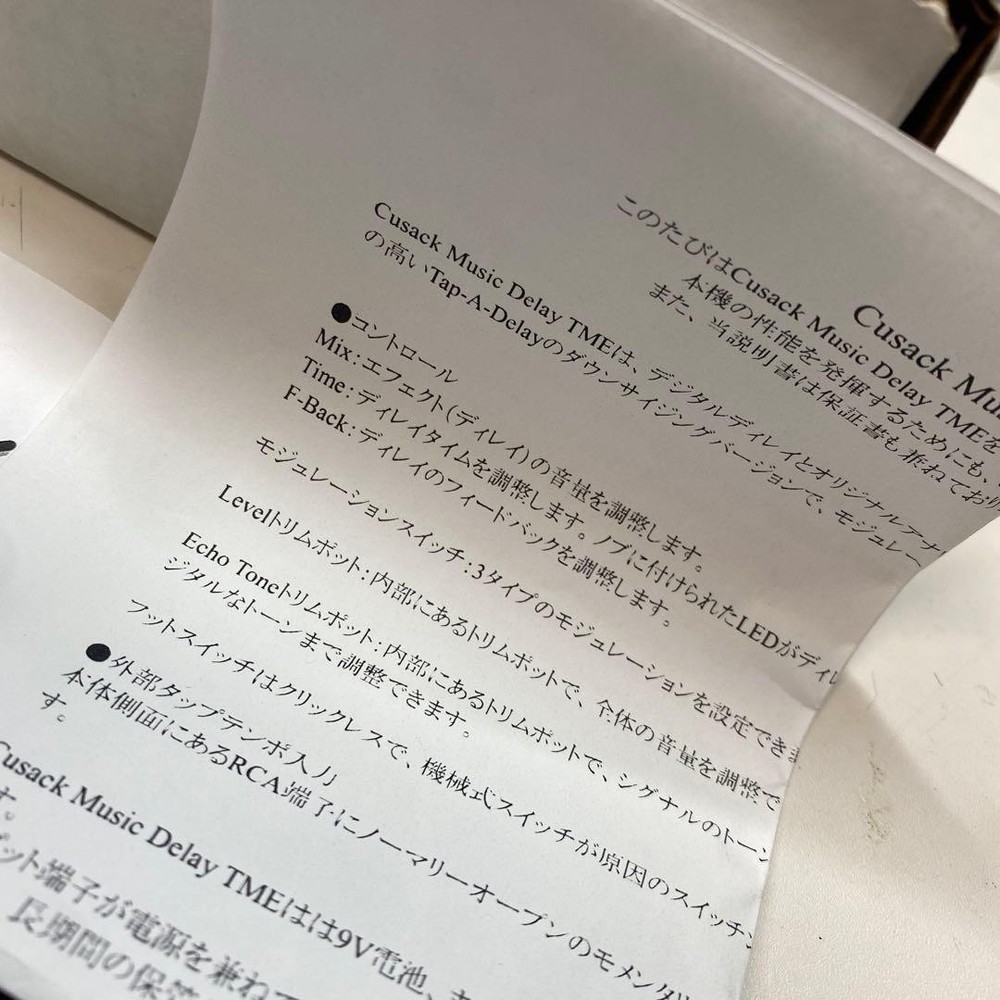 Cusack Mu
このたびはCusack Music Delay TMEを
本機の性能を発揮するためにも、
また、当説明書は保証書も兼ねており
Cusack Music Delay TMEは、デジタルディレイとオリジナルアナ
の高いTap-A-Delayのダウンサイジングバージョンで、モジュレー
●コントロール
Mix：エフェクト（ディレイ）の音量を調整します。
Time：ディレイタイムを調整します。ノブに付けられたLEDがディレ
F-Back：ディレイのフィードバックを調整します。
モジュレーションスイッチ：3タイプのモジュレーションを設定できま
Levelトリムポット：内部にあるトリムポットで、全体の音量を調整で
Echo Toneトリムポット：内部にあるトリムポットで、シグナルのトーン
ジタルなトーンまで調整できます。
フットスイッチはクリックレスで、機械式スイッチが原因のスイッチン
●外部タップテンポ入力
本体側面にあるRCA端子にノーマリーオープンのモメンタリ
す。
Cusack Music Delay TMEはは9V電池、
す。
プット端子が電源を兼ねて
長期間の保管